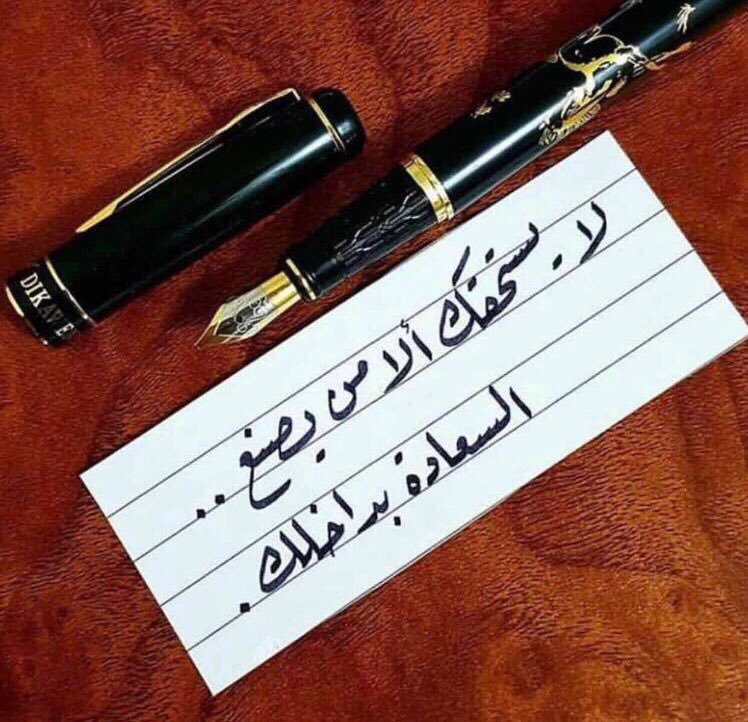 DIKAWE
لا يستحقك ألا من يصنع ..
السعادة بداخلك .